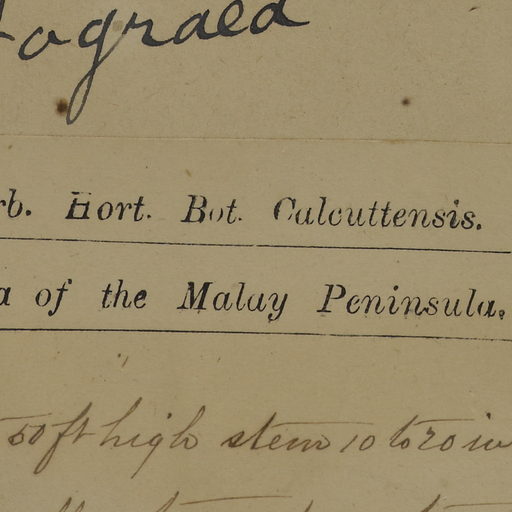 rb. Hort. Bot. Calcuttensis.
a of the Malay Peninsula.
50 ft high stem 10 to 20 in